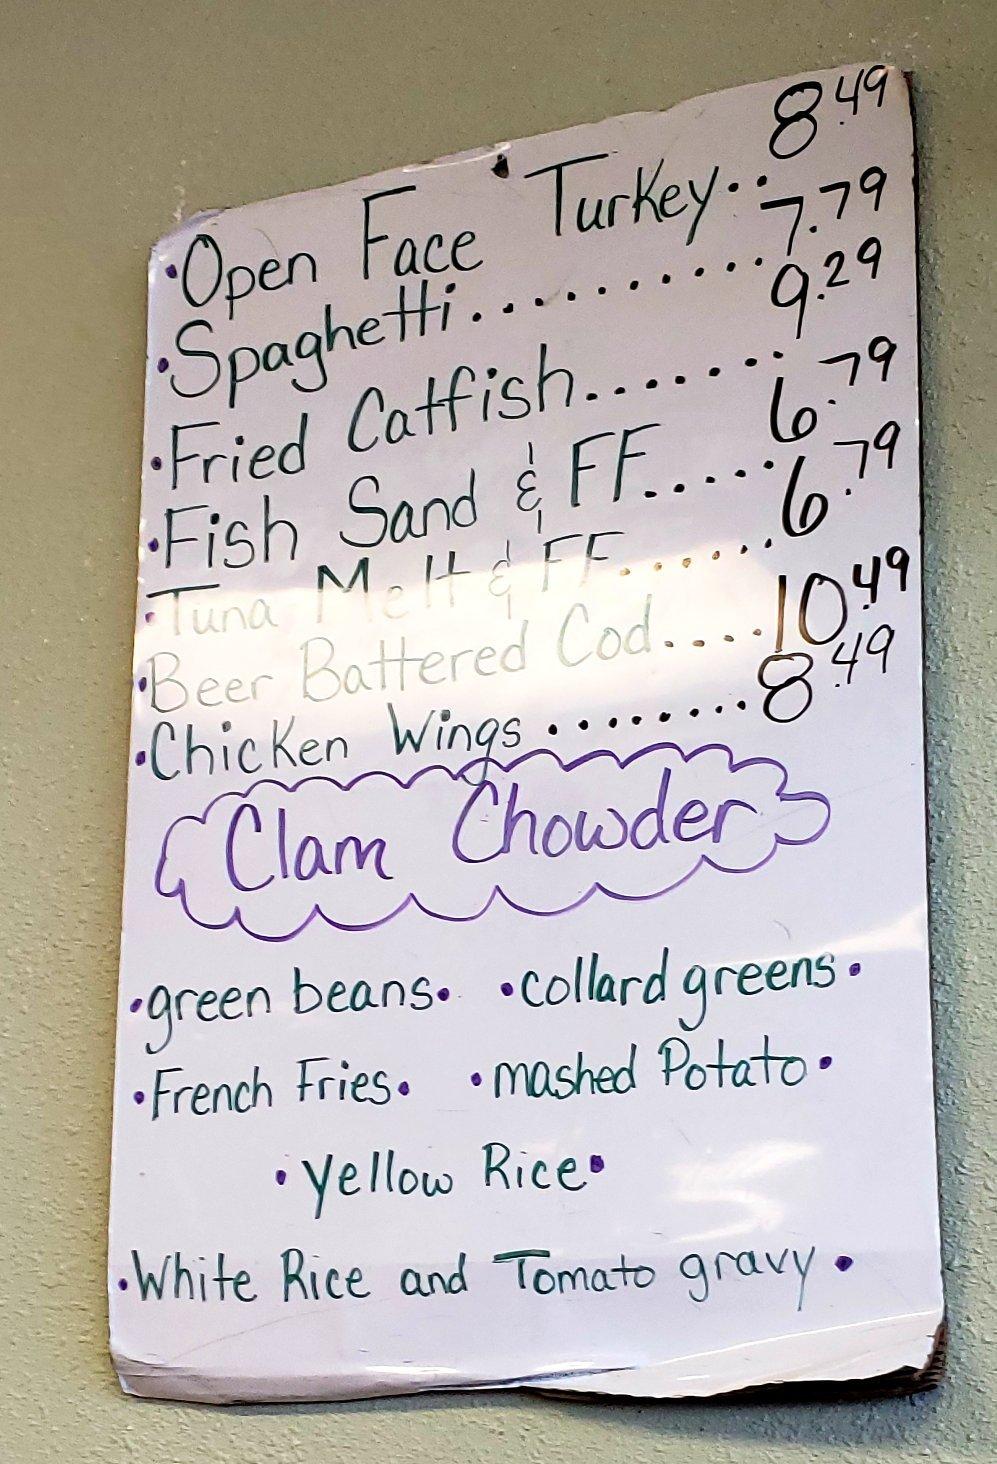 •Open Face Turkey.. 8.49
•Spaghetti.......... 7.79
•Fried Catfish....... 9.29
•Fish Sand & FF..... 6.79
•Tuna Melt & FF...... 6.79
•Beer Battered Cod....10.49
•Chicken Wings ........8.49
Clam Chowder
•green beans• •collard greens•
•French Fries• •mashed Potato•
•Yellow Rice•
•White Rice and Tomato gravy•